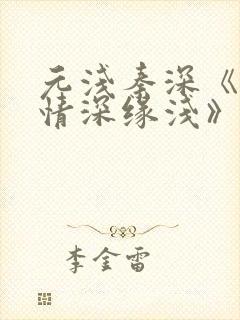 元浅秦深《
情深缘浅》
李金雷